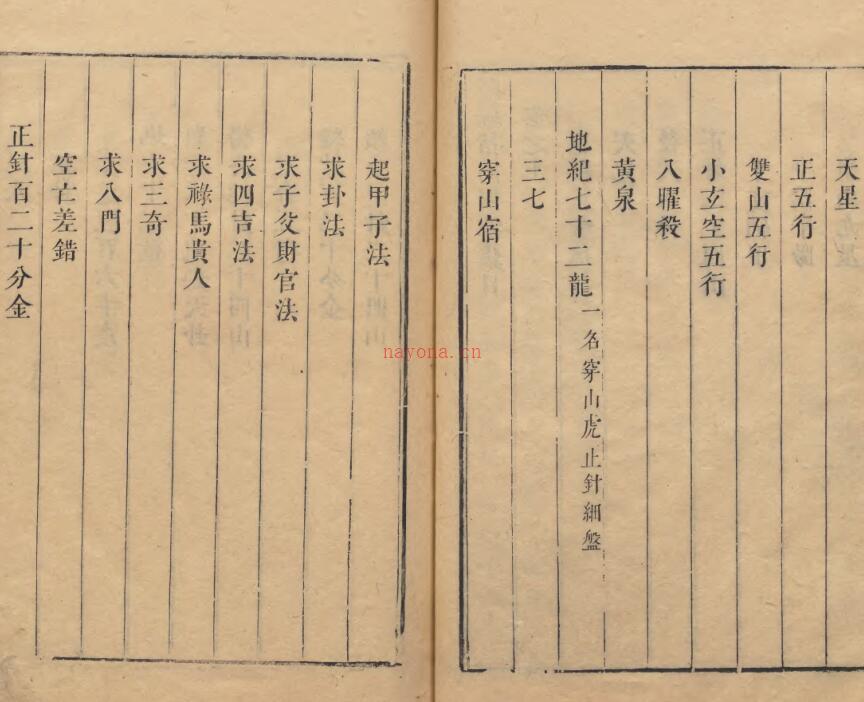 天星
正五行
雙山五行
小玄空五行
八曜殺
黃泉
地紀七十二龍一名穿山虎止針細盤
三七
穿山宿
起甲子法
求卦法
求子父財官法
求四吉法
求祿馬貴人
求三奇
求八門
空亡差錯
正針百二十分金
nayona.cn